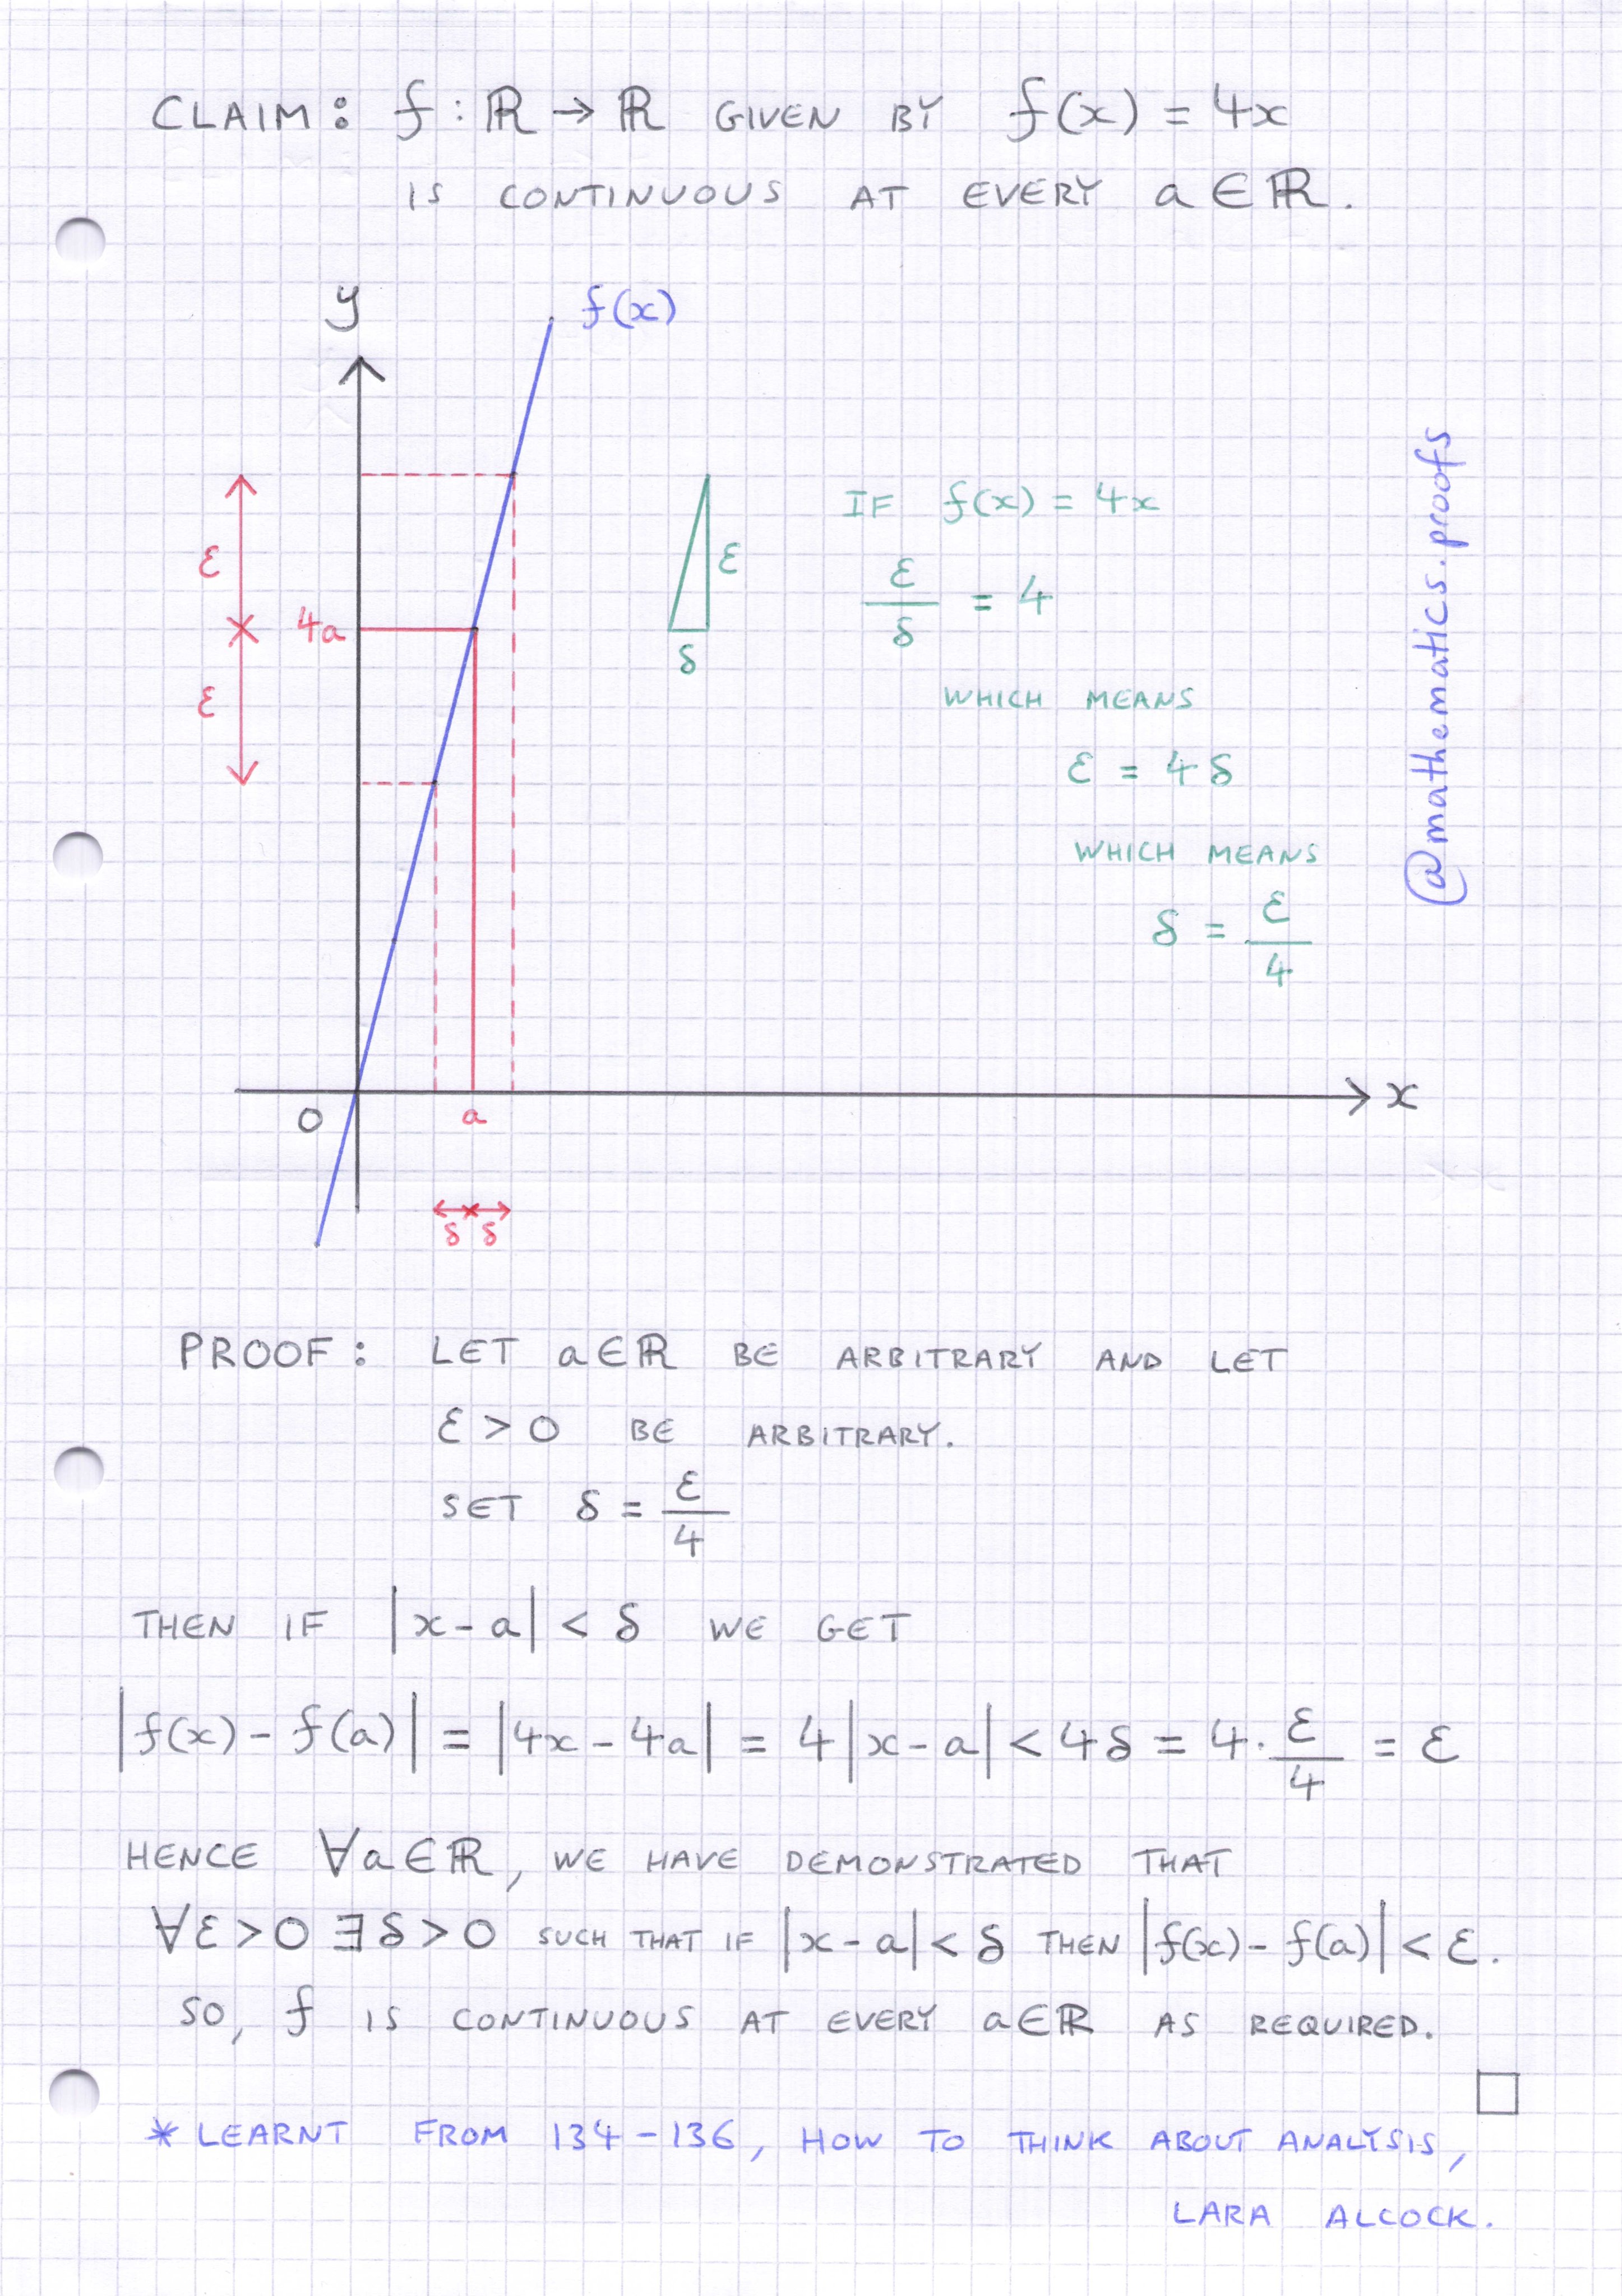 CLAIM: f : ℝ → ℝ GIVEN BY f(x) = 4x
IS CONTINUOUS AT EVERY a ∈ ℝ.
y
f(x)
ε
4a
ε
ε
δ
IF f(x) = 4x
ε/δ = 4
WHICH MEANS
ε = 4δ
WHICH MEANS
δ = ε/4
@mathematics.proofs
x
0
a
δ δ
PROOF: LET a∈ℝ BE ARBITRARY AND LET
ε > 0 BE ARBITRARY.
SET δ = ε/4
THEN IF |x - a| < δ WE GET
|f(x) - f(a)| = |4x - 4a| = 4|x - a| < 4δ = 4 · ε/4 = ε
HENCE ∀a∈ℝ, WE HAVE DEMONSTRATED THAT
∀ε > 0 ∃δ > 0 SUCH THAT IF |x - a| < δ THEN |f(x) - f(a)| < ε.
SO, f IS CONTINUOUS AT EVERY a∈ℝ AS REQUIRED.
□
* LEARNT FROM 134 - 136, HOW TO THINK ABOUT ANALYSIS,
LARA ALCOCK.